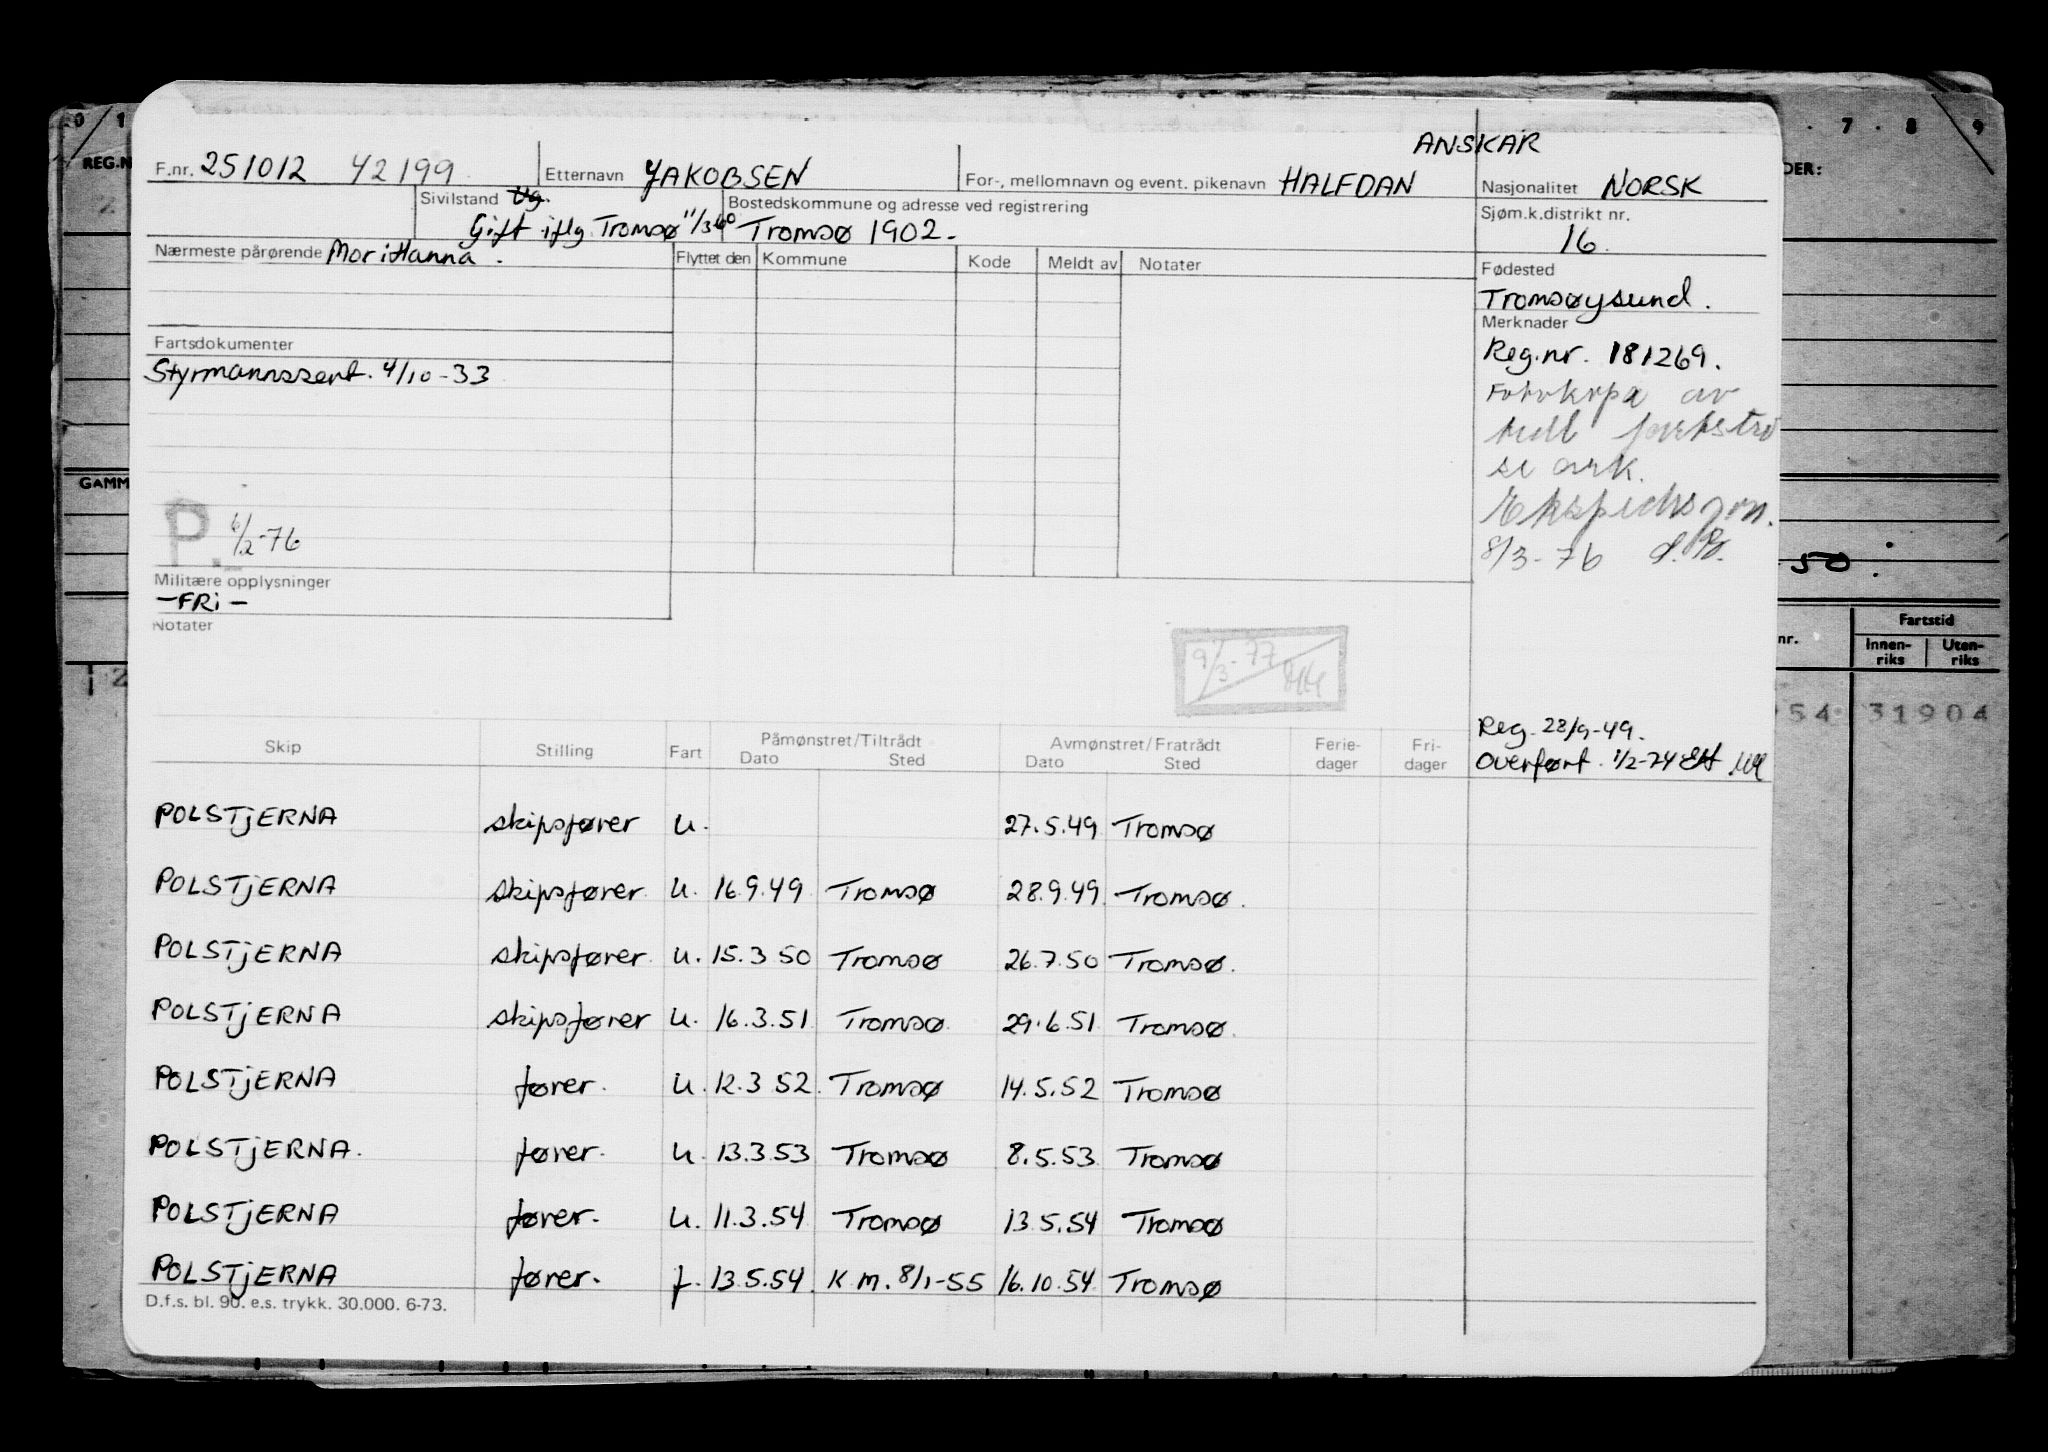 ANSKAR
F.nr. 251012 42199 Etternavn JAKOBSEN For-, mellomnavn og event. pikenavn HALFDAN Nasjonalitet NORSK
Sivilstand Ug. Gift iflg Tromsø 11/3-60 Bostedskommune og adresse ved registrering Tromsø 1902. Sjøm.k.distrikt nr. 16.
Nærmeste pårørende Mor: Hanna. Flyttet den Kommune Kode Meldt av Notater
Fødested
Tromsøysund.
Merknader
Reg.nr. 181269.
Fotokopi av
hull
se ark.
8/3-76
Fartsdokumenter
Styrmannssert. 4/10-33
P. 6/2-76
Militære opplysninger
-FRi-
Notater
9/3-77
Reg. 28/9-49.
Overført. 1/2-74
Skip Stilling Fart Påmønstret/Tiltrådt Avmønstret/Fratrådt Ferie- Fri-
Dato Sted Dato Sted dager dager
POLSTjERNA skipsfører u. 27.5.49 Tromsø
POLSTjERNA skipsfører u. 16.9.49 Tromsø 28.9.49 Tromsø.
POLSTjERNA skipsfører u. 15.3 50 Tromsø 26.7.50 Tromsø.
POLSTjERNA skipsfører u. 16.3.51 Tromsø 29.6.51 Tromsø.
POLSTjERNA fører. u. 12.3 52. Tromsø 14.5.52 Tromsø
POLSTjERNA. fører. u. 13.3.53 Tromsø 8.5.53 Tromsø
POLSTjERNA fører. u. 11.3.54 Tromsø 13.5.54 Tromsø
POLSTjERNA fører. f. 13.5.54. K m. 8/1-55 16.10.54 Tromsø
D.f.s. bl. 90. e.s. trykk. 30.000. 6-73.
0 1
REG.N
GAMM
12
7 . 8 9
DER:
50.
nr. Fartstid
Innen-riks Uten-riks
54 31904